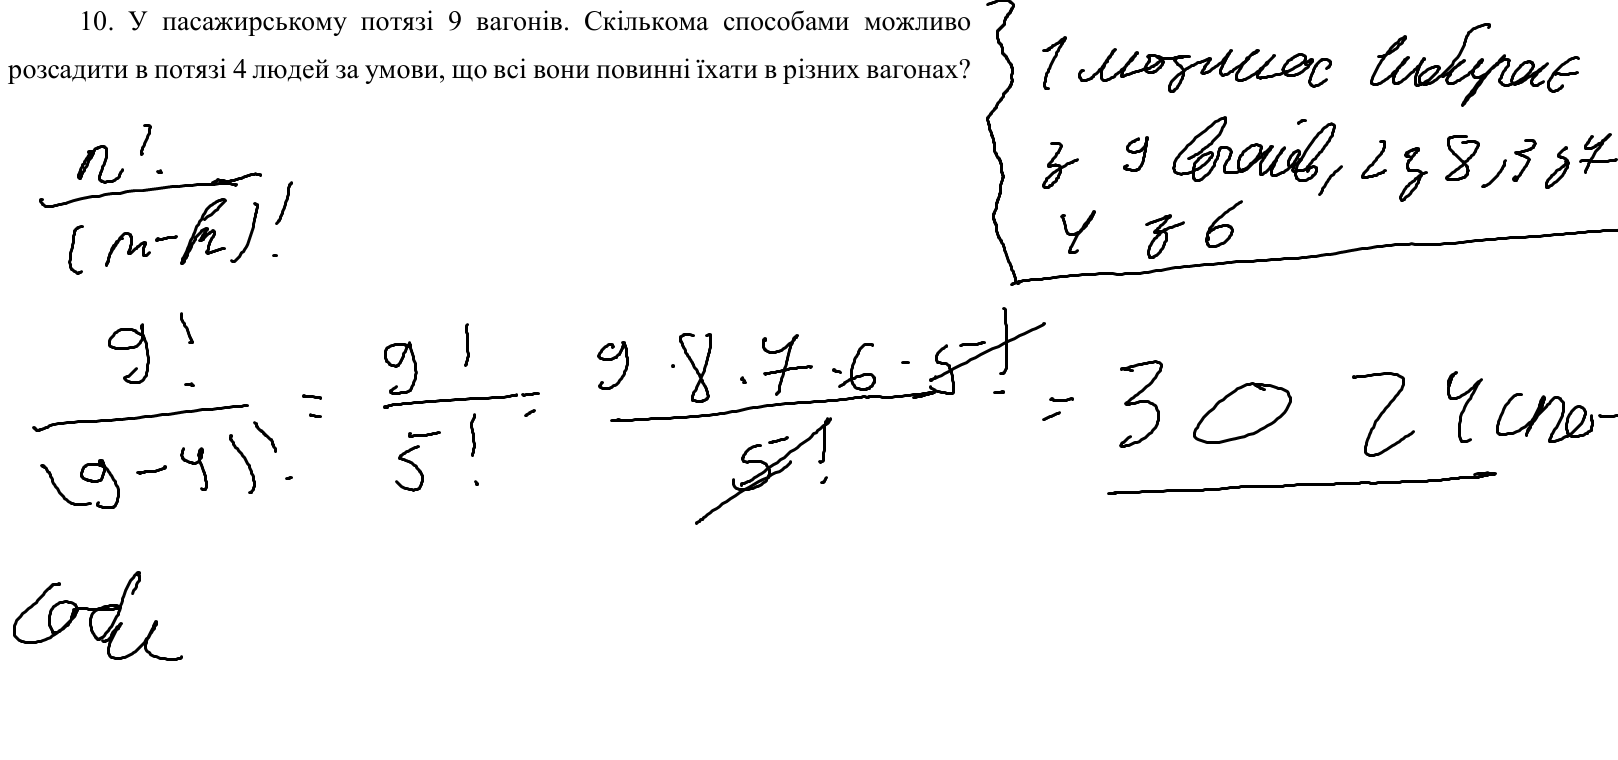 10. У пасажирському потязі 9 вагонів. Скількома способами можливо
розсадити в потязі 4 людей за умови, що всі вони повинні їхати в різних вагонах?
1 можливо вибирає
з 9 вагонів, 2 з 8, 3 з 7
4 з 6
n!
(n-k)!
9! / (9-4)! = 9! / 5! = 9·8·7·6·5! / 5! = 3024 спо-
соби